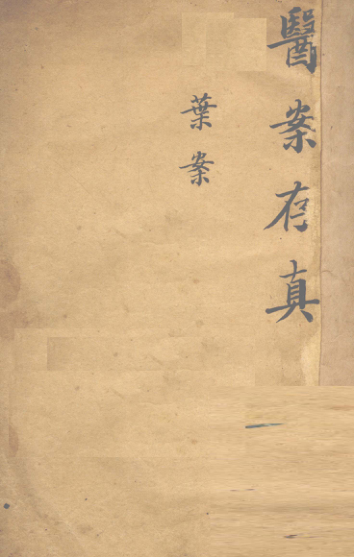 醫案存真
葉案